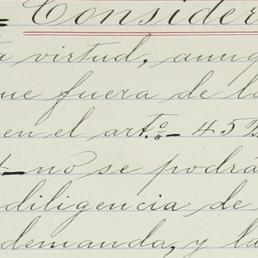 = Consider
ta virtud, aunq
ue fuera de lo
en el arto. 45
no se podrá
diligencia de
demanda, y la